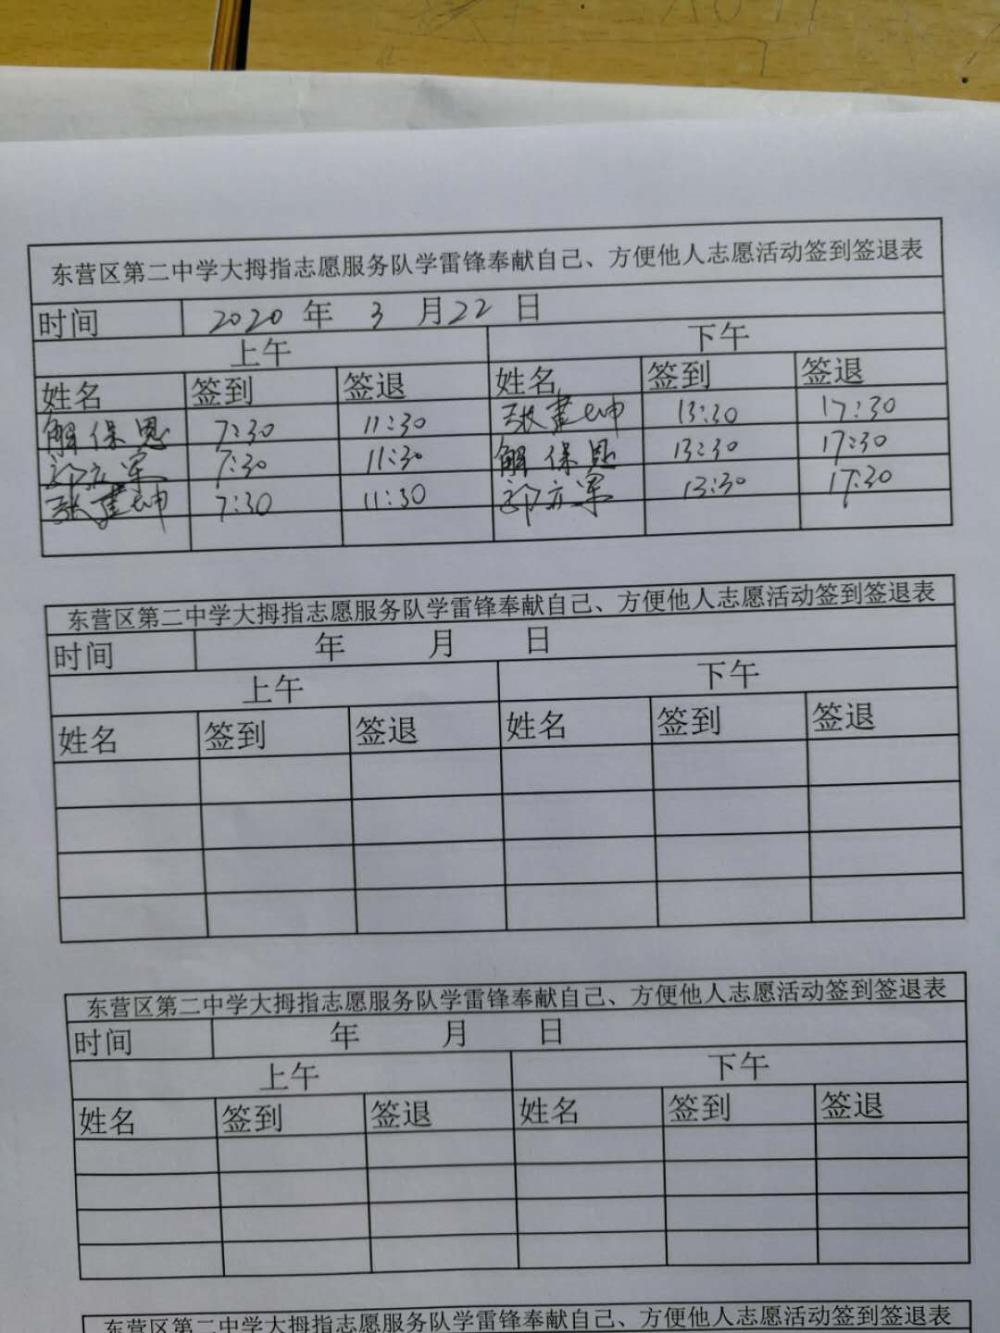 东营区第二中学大拇指志愿服务队学雷锋奉献自己、方便他人志愿活动签到签退表
时间 2020 年 3 月 22 日
上午 下午
姓名 签到 签退 姓名 签到 签退
解保恩 7:30 11:30 张建坤 13:30 17:30
7:30 11:30 解保恩 13:30 17:30
张建坤 7:30 11:30 13:30 17:30
东营区第二中学大拇指志愿服务队学雷锋奉献自己、方便他人志愿活动签到签退表
时间 年 月 日
上午 下午
姓名 签到 签退 姓名 签到 签退
东营区第二中学大拇指志愿服务队学雷锋奉献自己、方便他人志愿活动签到签退表
时间 年 月 日
上午 下午
姓名 签到 签退 姓名 签到 签退
东营区第二中学大拇指志愿服务队学雷锋奉献自己、方便他人志愿活动签到签退表